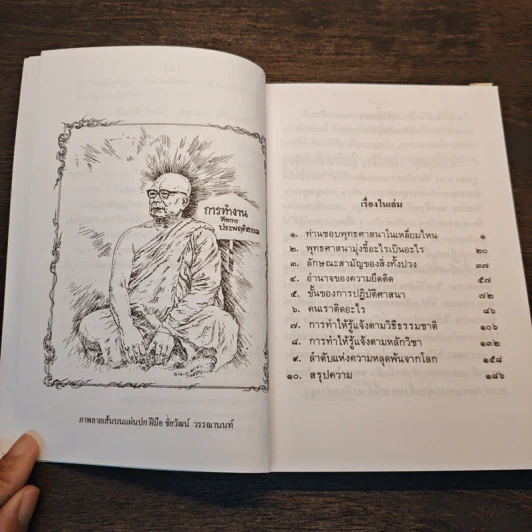 การทำงาน
คือการ
ประพฤติธรรม
ภาพลายเส้นบนแผ่นปก ฝีมือ ชัยวัฒน์ วรรณานนท์
เรื่องในเล่ม
๑. ท่านชอบพุทธศาสนาในเหลี่ยมไหน ๑
๒. พุทธศาสนามุ่งชี้อะไรเป็นอะไร ๒๐
๓. ลักษณะสามัญของสิ่งทั้งปวง ๓๗
๔. อำนาจของความยึดติด ๕๗
๕. ขั้นของการปฏิบัติศาสนา ๗๒
๖. คนเราติดอะไร ๘๖
๗. การทำให้รู้แจ้งตามวิธีธรรมชาติ ๑๐๖
๘. การทำให้รู้แจ้งตามหลักวิชา ๑๓๒
๙. ลำดับแห่งความหลุดพ้นจากโลก ๑๕๘
๑๐. สรุปความ ๑๘๖